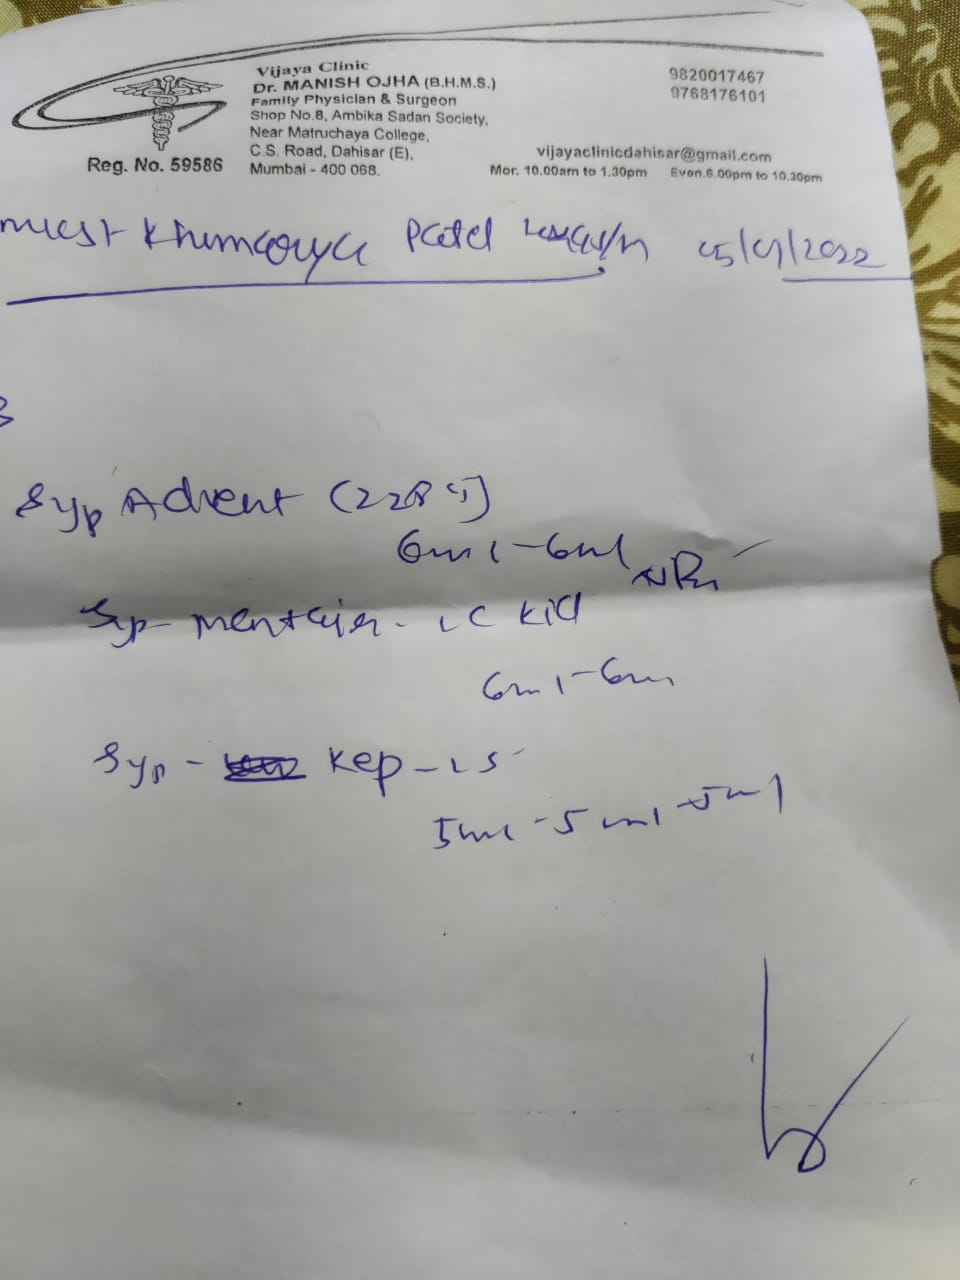 Vijaya Clinic
Dr. MANISH OJHA (B.H.M.S.)
Family Physician & Surgeon
Shop No.8, Ambika Sadan Society,
Near Matruchaya College,
C.S. Road, Dahisar (E),
Mumbai - 400 068.
Reg. No. 59586
9820017467
9768176101
vijayaclinicdahisar@gmail.com
Mor. 10.00am to 1.30pm Even.6.00pm to 10.30pm
Patel 2022
Syp Advent (228 5)
6ml-6ml
Syp kid
6ml-6ml
Syp - Kep-LS
5ml-5ml-5ml